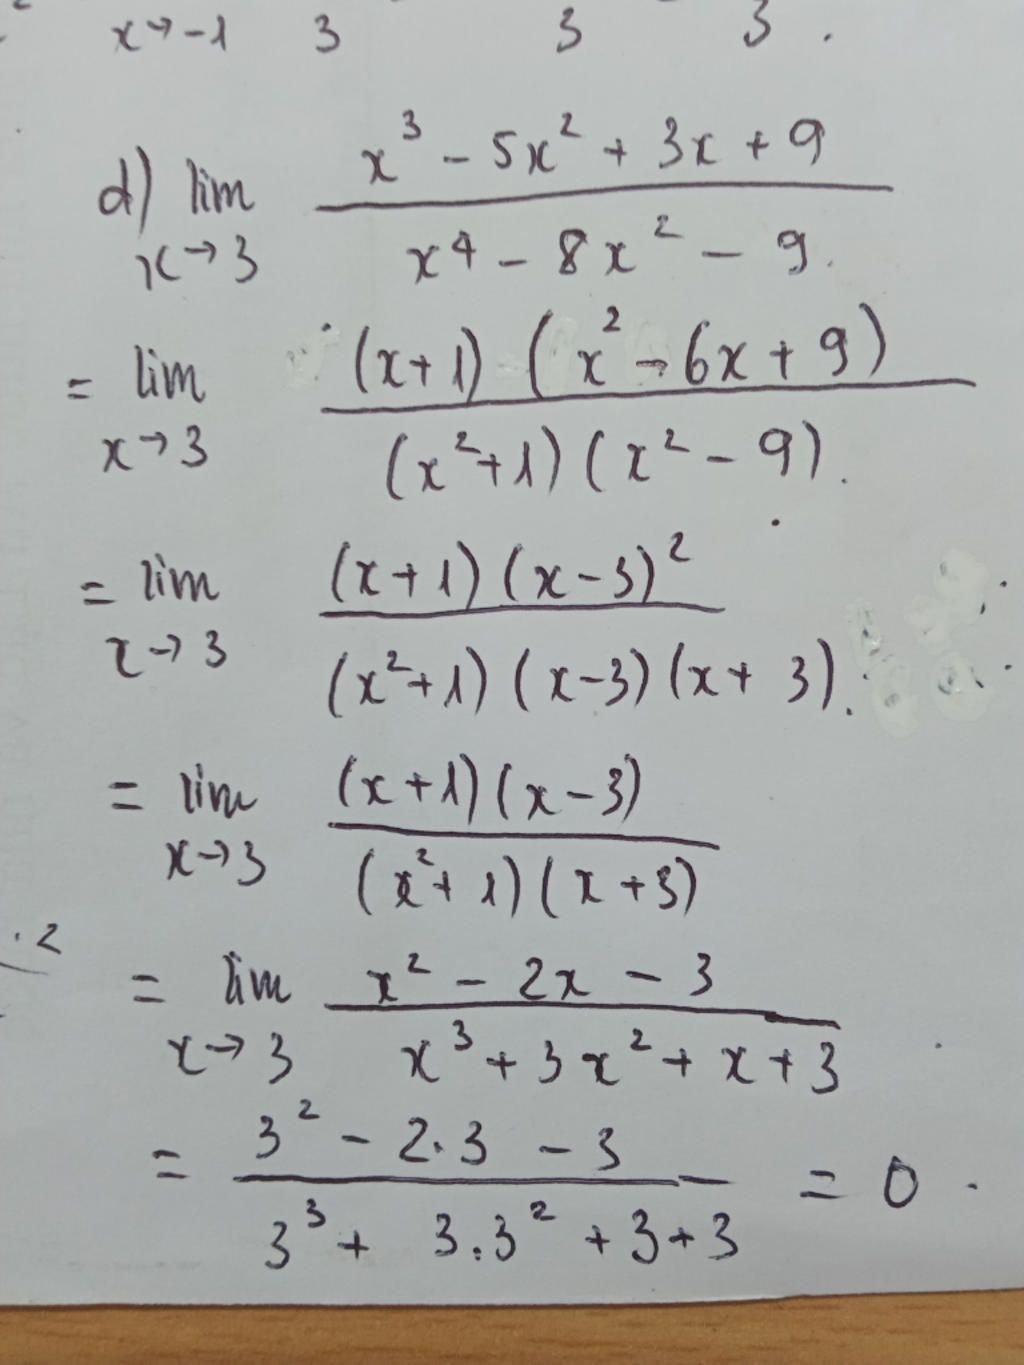 x→-1 3 3 3 .
d) lim x³ - 5x² + 3x + 9
x→3 x⁴ - 8x² - 9.
= lim (x+1) (x² - 6x + 9)
x→3 (x²+1) (x² - 9).
= lim (x+1) (x-3)²
x→3 (x²+1) (x-3) (x+3).
= lim (x+1) (x-3)
x→3 (x²+1) (x+3)
. 2
= lim x² - 2x - 3
x→3 x³ + 3x² + x + 3
= 3² - 2.3 - 3 = 0 .
3³ + 3.3² + 3 + 3